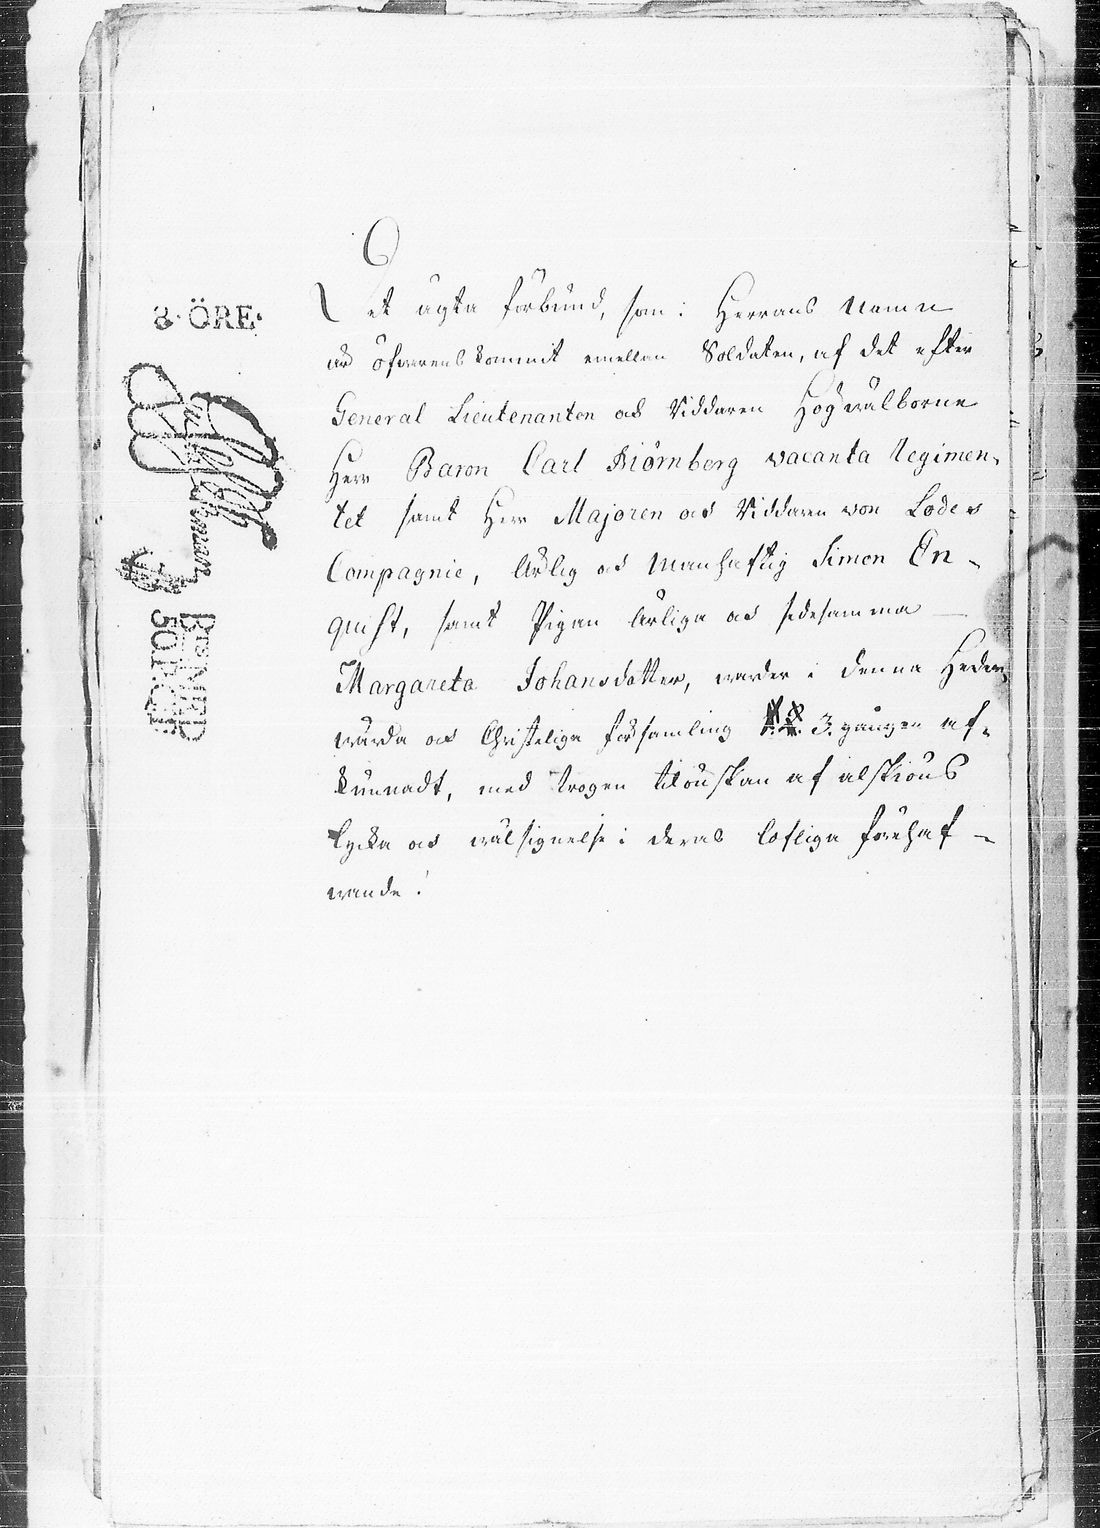 8·ÖRE·
Det ägta förbund, som i Herrans Namn
är öfwerenskommit emellan Soldaten, af det efter
General Lieutenanten och Riddaren Högwälborne
Herr Baron Carl Biörnberg vacanta Regimen-
tet samt Herr Majoren och Riddaren von Lodes
Compagnie, Ärlig och Manhaftig Simon En-
quist, samt Pigan Ärliga och sedesamma
Margareta Johansdotter, warder i denna Heder-
wärda och Christeliga församling 3. gången af-
kunnadt, med trogen tilönskan af alskiöns
lycka och wälsignelse i deras lofliga förehaf-
wande!